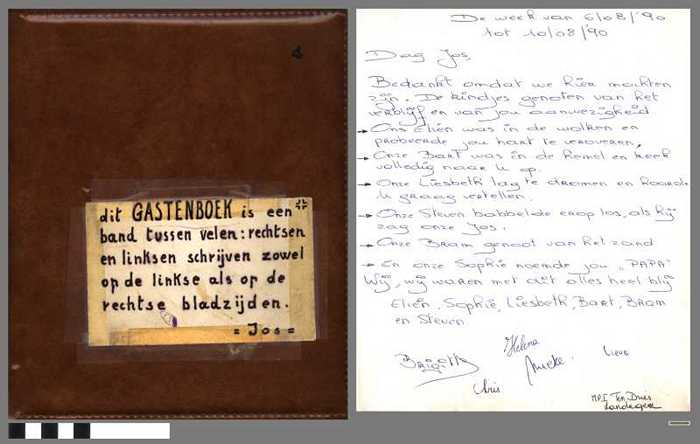 dit GASTENBOEK is een
band tussen velen: rechtsen
en linksen schrijven zowel
op de linkse als op de
rechtse bladzijden.
= Jos =
De week van 6/08/'90
tot 10/08/'90
Dag Jos,
Bedankt omdat we hier mochten
zijn. De kindjes genoten van het
verblijf en van jou aanwezigheid
→ Ons Elien was in de wolken en
probeerde jou hart te veroveren,
→ Onze Bart was in de hemel en keek
volledig naar u op.
→ Onze Liesbeth lag te dromen en hoorde
u graag vertellen.
→ Onze Steven babbelde erop los, als hij
zag onze Jos.
→ Onze Bram genoot van het zand
→ En onze Sophie noemde jou „PAPA"
Wij, wij waren met dit alles heel blij
Elien, Sophie, Liesbeth, Bart, Bram
en Steven
Helena
Lieve
Chris
MPI Ten Dries
Landegem